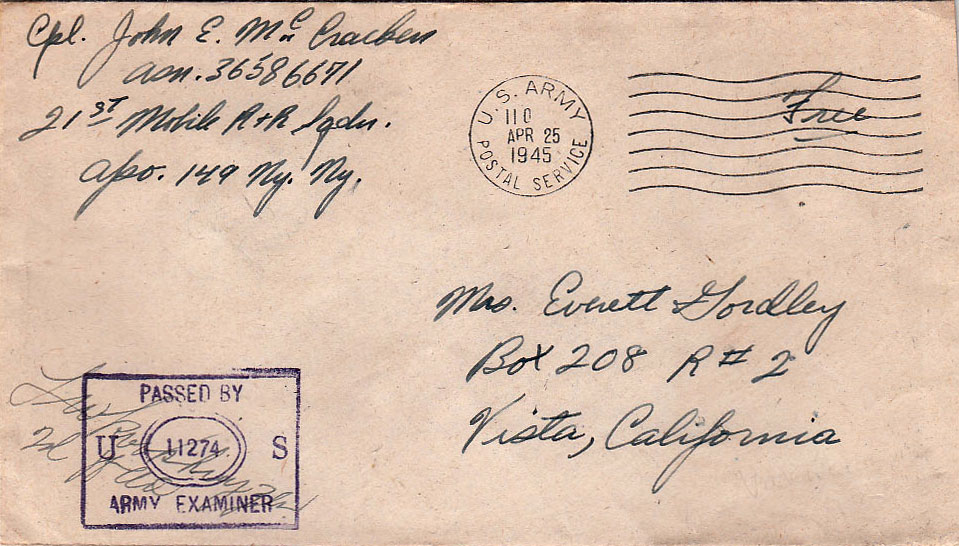 Cpl. John E. McCracken
asn. 36586671
21ST Mobile R+R Sqdn.
apo. 149 Ny. Ny.
U.S. ARMY
110
APR 25
1945
POSTAL SERVICE
Free
Mrs. Everett Gordley
Box 208 R# 2
Vista, California
PASSED BY
U 11274 S
ARMY EXAMINER